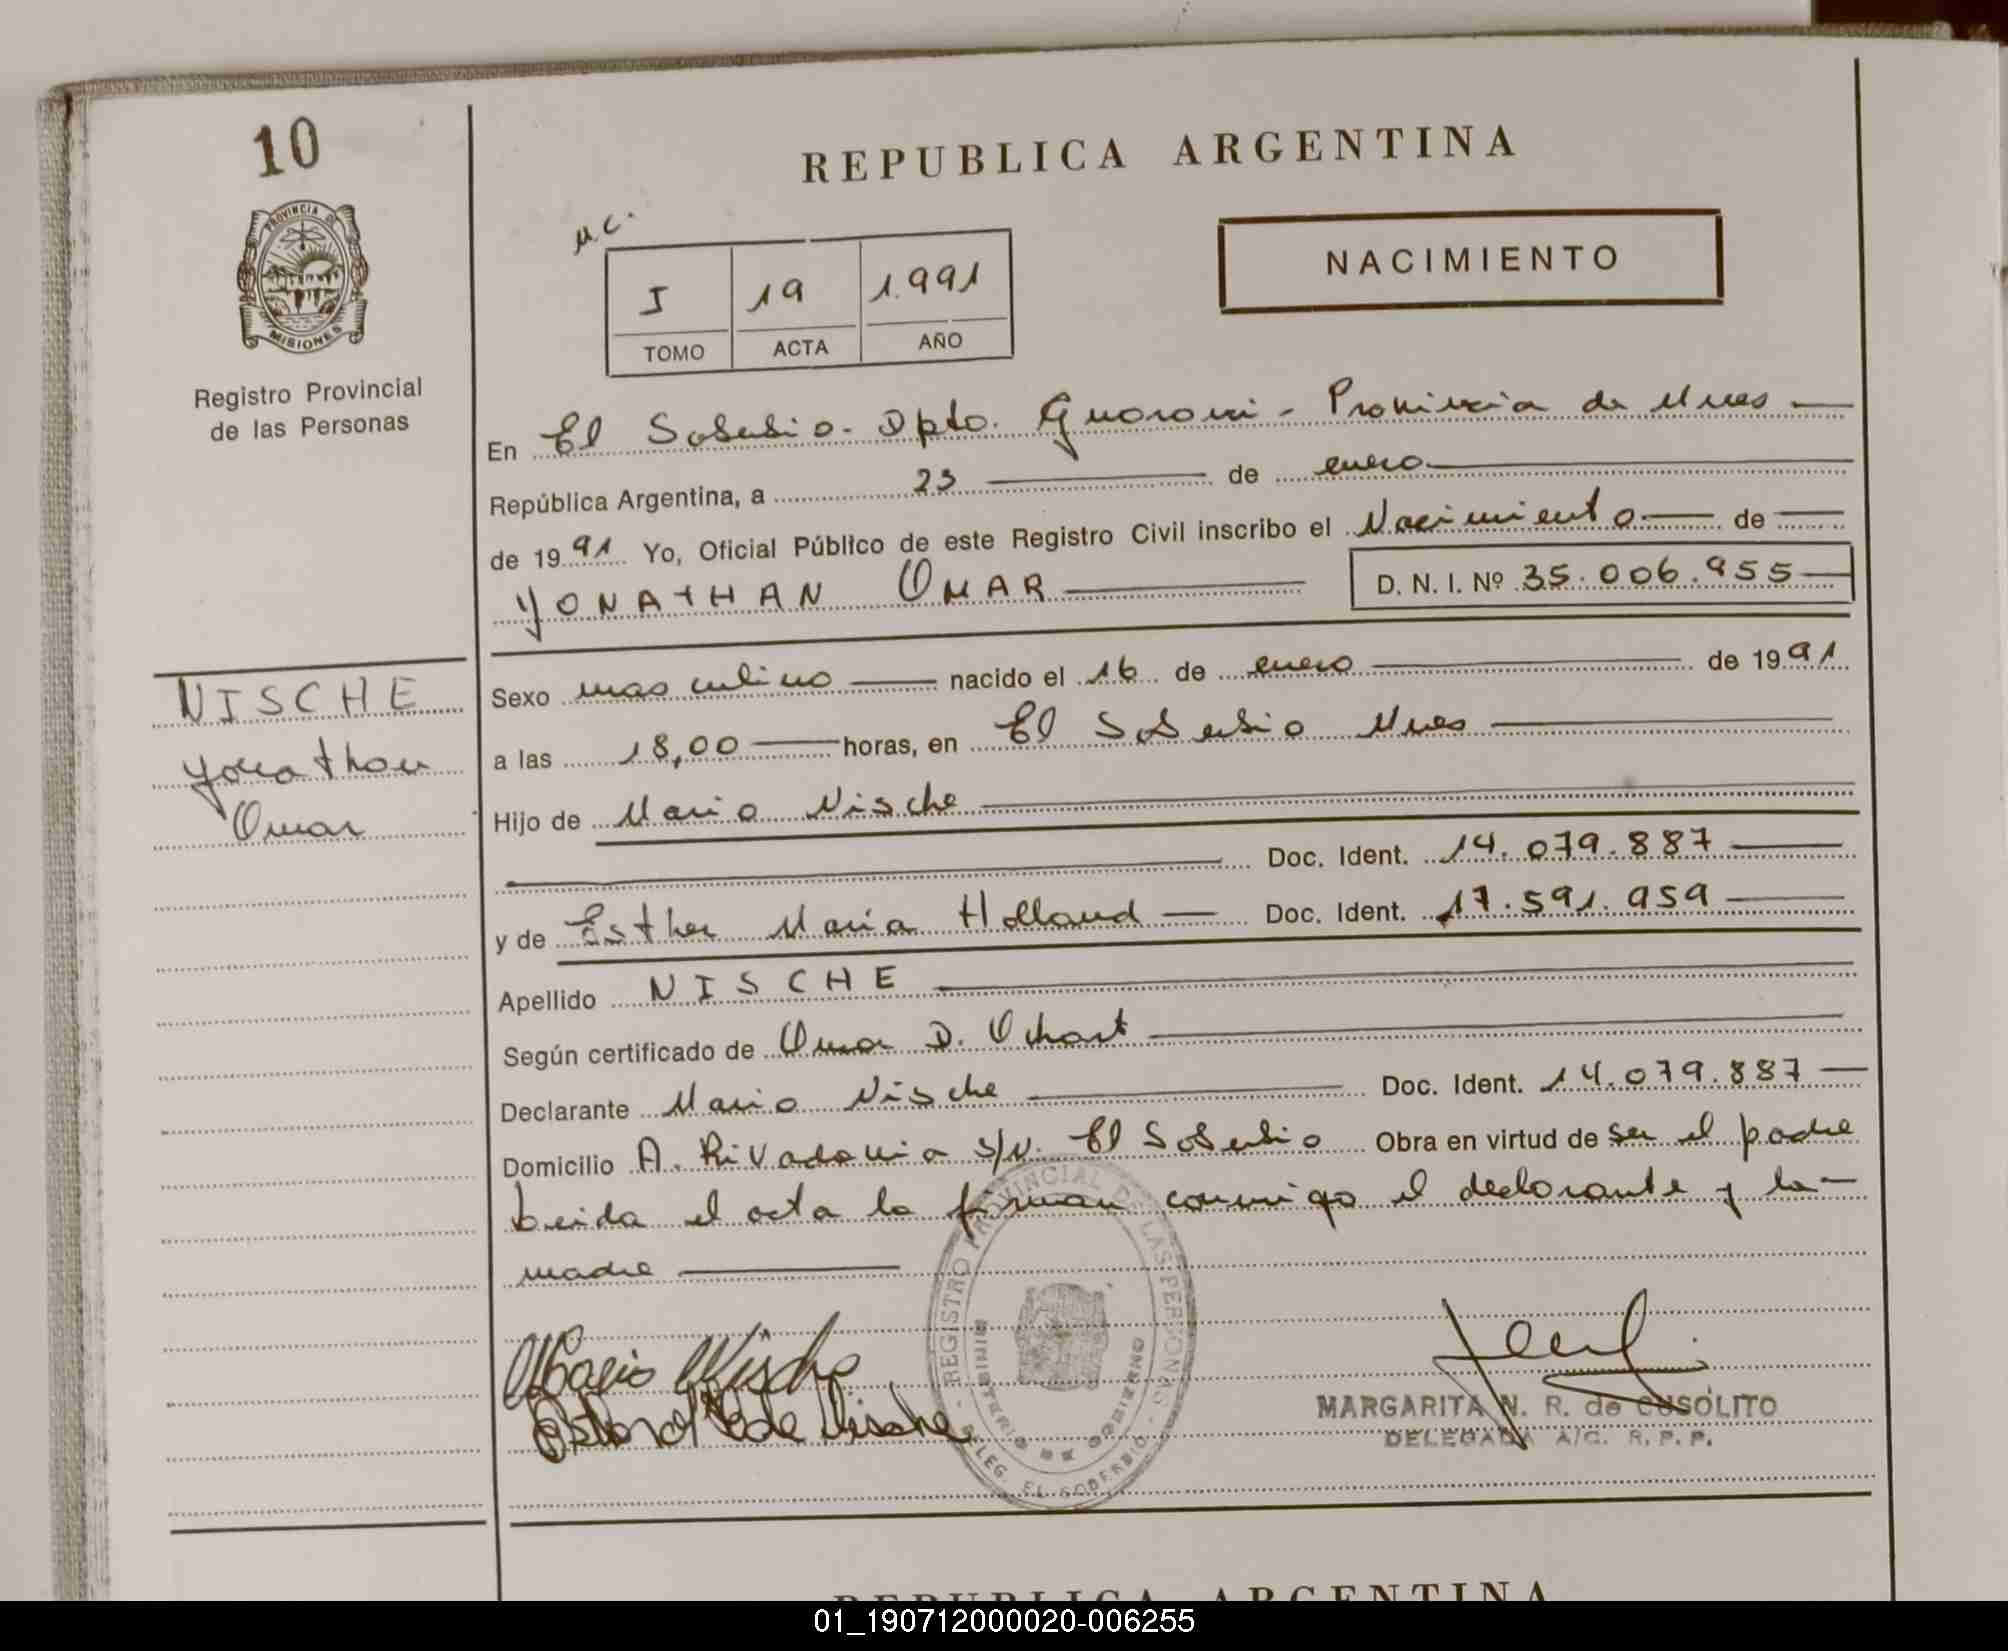 10
REPUBLICA ARGENTINA
PROVINCIA DE MISIONES
Registro Provincial
de las Personas
M.C.
I 19 1.991
TOMO ACTA AÑO
NACIMIENTO
En El Soberbio - Dpto. Guarani - Provincia de Mnes
República Argentina, a 23 de enero
de 1991 Yo, Oficial Público de este Registro Civil inscribo el Nacimiento de
YONATHAN OMAR D. N. I. Nº 35.006.955
NISCHE
Yonathan
Omar
Sexo masculino nacido el 16 de enero de 1991
a las 18,00 horas, en El Soberbio Mnes
Hijo de Mario Nische
Doc. Ident. 14.079.887
y de Esther Maria Holland Doc. Ident. 17.591.959
Apellido NISCHE
Según certificado de Omar D.
Declarante Mario Nische Doc. Ident. 14.079.887
Domicilio A. Rivadavia s/N. El Soberbio Obra en virtud de ser el padre
Leida el acta la firman conmigo el declarante y la
madre
Mario Nische
de Nische
REGISTRO PROVINCIAL DE LAS PERSONAS - DELEG. EL SOBERBIO -
MINISTERIO DE GOBIERNO
MARGARITA N. R. de CUSOLITO
DELEGADA A/C. R. P. P.
REPUBLICA ARGENTINA
01_190712000020-006255